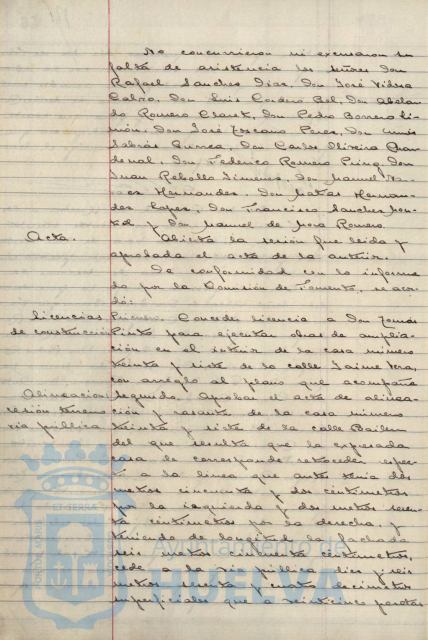 No concurrieron ni excusaron su
falta de asistencia los señores Don
Rafael Sanchez Diaz, Don José Vidosa
Calvo, Don Luis Cordero Bel, Don Abelar-
do Romero Claret, Don Pedro Borrero Li-
món, Don José Toscano Perez, Don
Don Carlos Oliveira
Don Federico Romero Don
Juan Rebollo Jimenez, Don Manuel
Hernandez, Don Matias Hernan-
dez Lopez, Don Francisco Sanchez
y Don Manuel de Mora Romero.
Acta.
Abierta la sesión fue leida y
aprobada el acta de la anterior.
De conformidad con lo informa-
do por la Comisión de Fomento, se acor-
dó:
licencias
de construcción
Primero. Conceder licencia a Don Tomás
Pinto para ejecutar obras de amplia-
ción en el interior de la casa numero
treinta y siete de la calle Jaime Vera,
con arreglo al plano que acompaña
Alineacion
cesión terreno
via pública
Segundo. Aprobar el acta de alinea-
ción y rasante de la casa numero
treinta y siete de la calle Bailen
del que resulta que la expresada
casa le corresponde retroceder respec-
to a la linea que antes tenia dos
metros cincuenta y dos centimetros
por la izquierda y dos metros seten-
ta centimetros por la derecha, y
teniendo de longitud la fachada
seis metros cincuenta centimetros,
cede a la via pública diez y seis
metros setenta y cuatro decimetros
superficiales que a veinticinco pesetas
Ayuntamiento de
HUELVA